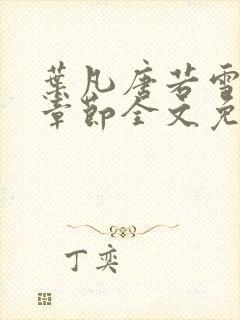 葉凡唐若雪
章節全文免
丁奕